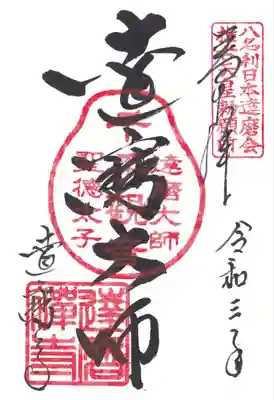 八名刹日本達磨会
令和三年
達磨大師
千手観音
達磨大師
聖徳太子
達磨寺
達磨禅寺